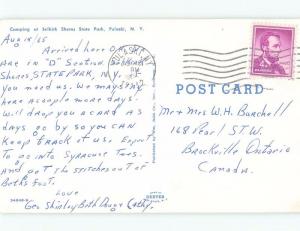 Camping at Selkirk Shores State Park, Pulaski, N. Y.
Aug 18/65
Arrived here O
are in "D" Section
Shores, STATE PARK, N.Y.
you need us. We may stay
here a couple more days.
Will drop you a card as
days go by so you can
keep track of us. Expect
to go into Syracuse Tues.
and get the stitches out of
Beth's foot.
Love
Geo Shirley Beth Doug Cathy.
PULASKI NY
POST CARD
Mr + Mrs W.H. Burchell
168 Pearl ST. W.
Brockville Ontario
Canada.
DEXTER